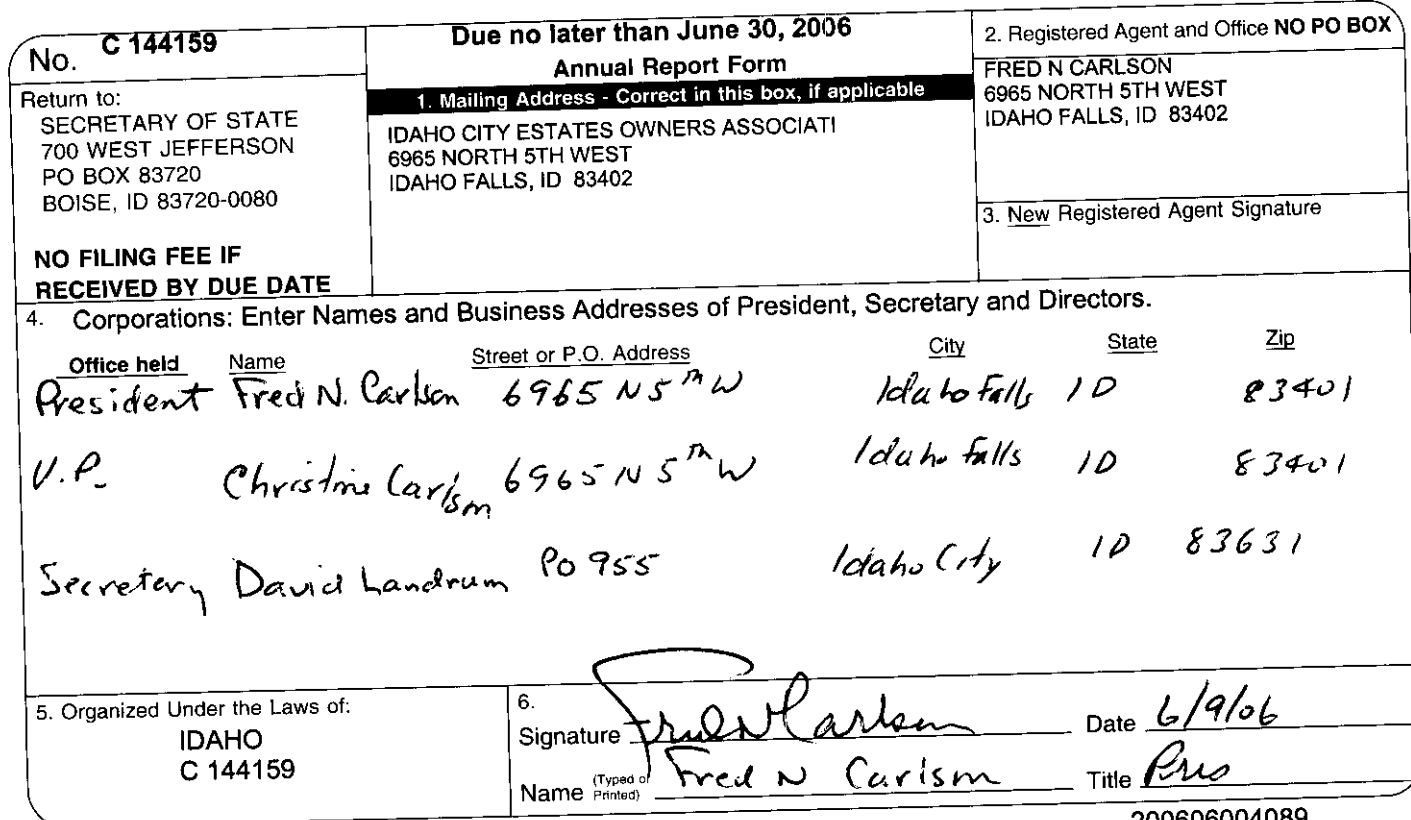 No. C 144159
Return to:
SECRETARY OF STATE
700 WEST JEFFERSON
PO BOX 83720
BOISE, ID 83720-0080
NO FILING FEE IF
RECEIVED BY DUE DATE
Due no later than June 30, 2006
Annual Report Form
1. Mailing Address - Correct in this box, if applicable
IDAHO CITY ESTATES OWNERS ASSOCIATI
6965 NORTH 5TH WEST
IDAHO FALLS, ID 83402
2. Registered Agent and Office NO PO BOX
FRED N CARLSON
6965 NORTH 5TH WEST
IDAHO FALLS, ID 83402
3. New Registered Agent Signature
4. Corporations: Enter Names and Business Addresses of President, Secretary and Directors.
Office held Name Street or P.O. Address City State Zip
President Fred N. Carlson 6965 N 5th W Idaho Falls ID 83401
V.P. Christine Carlson 6965 N 5th W Idaho Falls ID 83401
Secretary David Landrum PO 955 Idaho City ID 83631
5. Organized Under the Laws of:
IDAHO
C 144159
6.
Signature Fred N Carlson Date 6/9/06
Name (Typed or Printed) Fred N Carlson Title Pres
200606004089